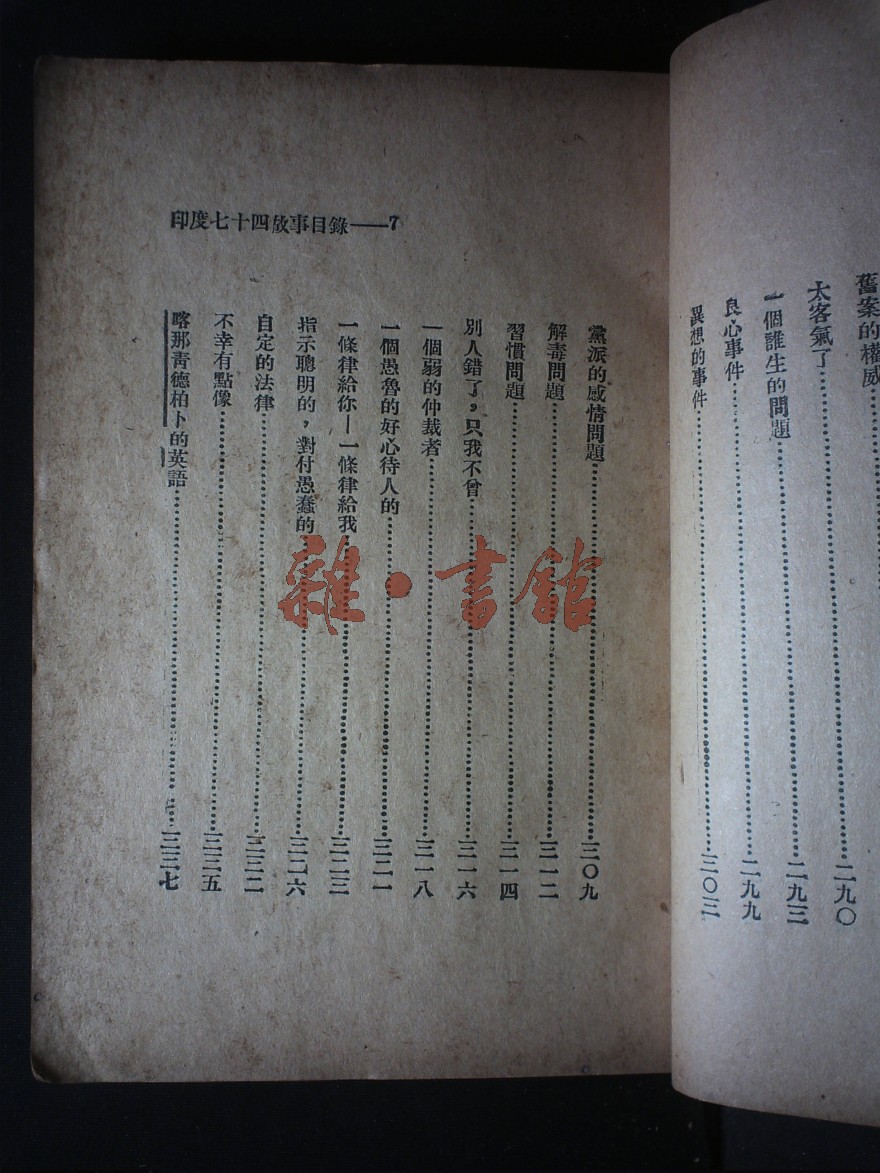 舊案的權威
太客氣了……二九〇
一個誰生的問題……二九三
良心事件……二九九
異想的事件……三〇三
印度七十四故事目錄——7
黨派的感情問題……三〇九
解毒問題……三一二
習慣問題……三一四
別人錯了，只我不曾……三一六
一個弱的仲裁者……三一八
一個愚魯的好心待人的……三二一
一條律給你—一條律給我……三二三
指示聰明的，對付愚蠢的……三二六
自定的法律……三三二
不幸有點像……三三五
喀那青德柏卜的英語……三三七
雜·書館